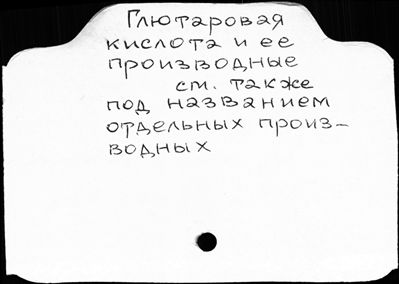 Глютаровая
кислота и ее
производные
см. также
под названием
отдельных произ-
водных